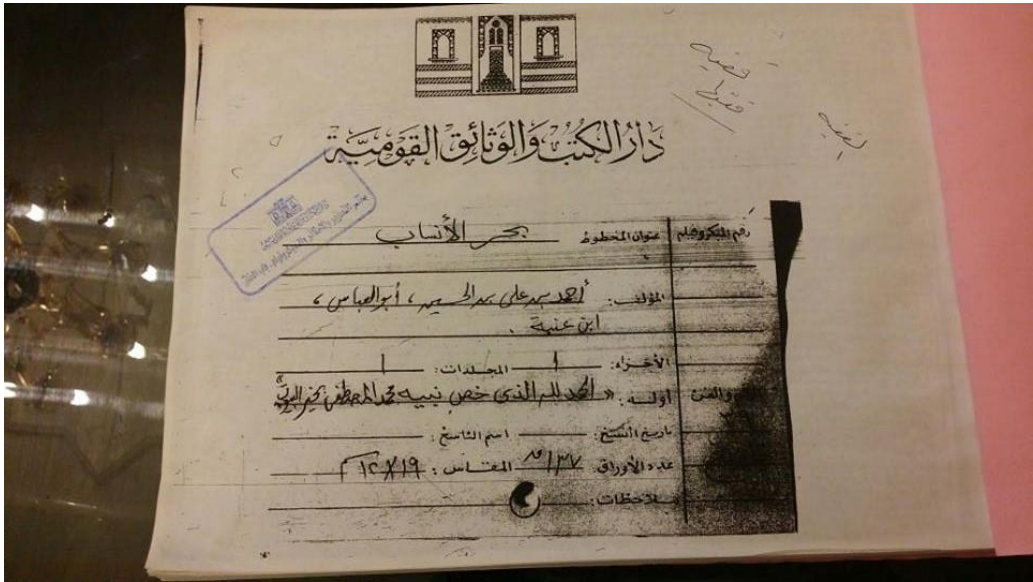 قضية
دار الكتب والوثائق القومية
رقم الميكروفيلم عنوان المخطوط بحر الأنساب
المؤلف: أحمد بن علي بن الحسين، أبو العباس،
ابن عنبة.
الأجزاء: ١ المجلدات: ١
والفن أوله: «الحمد لله الذي خص نبيه محمد المصطفى بخير
تاريخ النسخ: اسم الناسخ:
عدد الأوراق ١٣٧ المقاس: ١٩×١٢
ملاحظات: